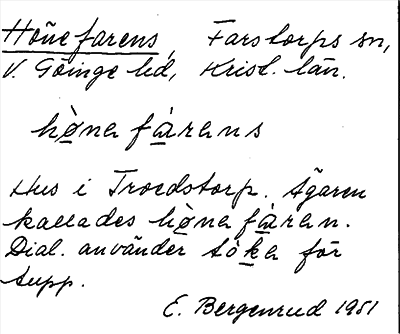 Höñefarens, Farstorps sn,
V. Göinge hd, Krist. län.
hø̱na få̱rans
Hus i Troedstorp. Ägaren
kallades hø̱na få̱ran.
Dial. använder tö̱ka för
tupp.
E. Bergenrud 1951